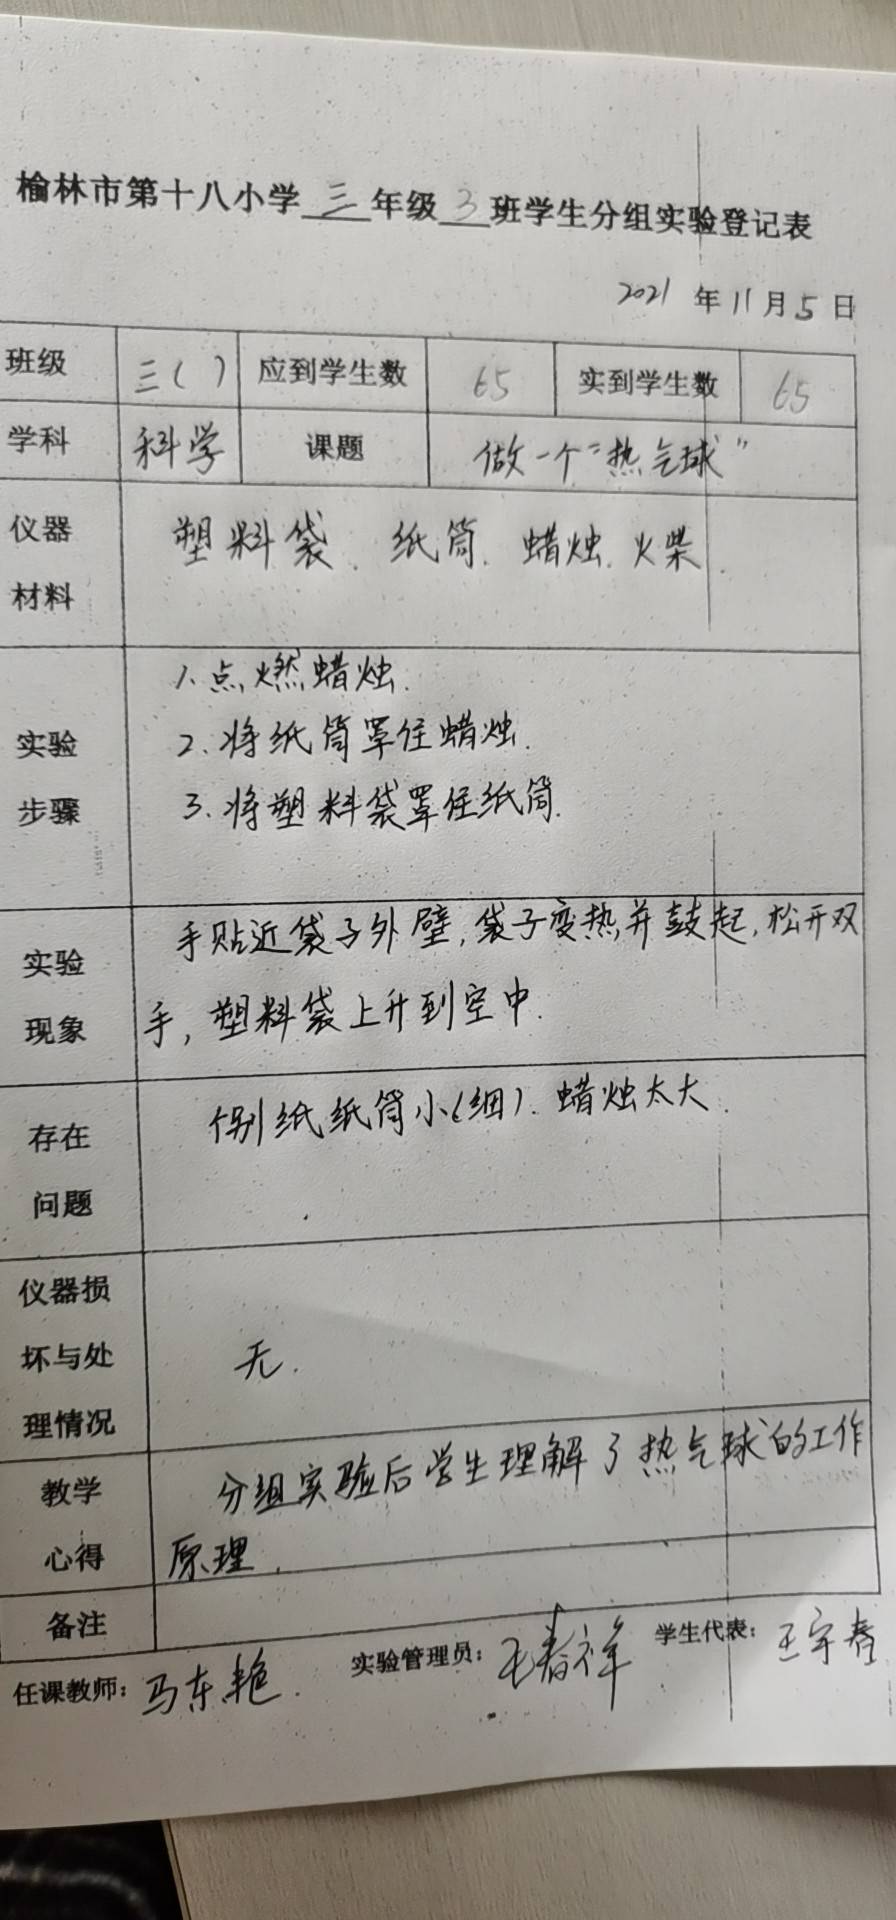 榆林市第十八小学三年级3班学生分组实验登记表
2021年11月5日
班级 三( ) 应到学生数 65 实到学生数 65
学科 科学 课题 做一个“热气球”
仪器材料 塑料袋、纸筒、蜡烛、火柴.
实验步骤
1、点燃蜡烛.
2、将纸筒罩住蜡烛.
3、将塑料袋罩住纸筒.
实验现象
手贴近袋子外壁,袋子变热并鼓起,松开双
手,塑料袋上升到空中.
存在问题
个别纸纸筒小(细). 蜡烛太大.
仪器损坏与处理情况
无.
教学心得
分组实验后学生理解了热气球的工作
原理.
备注
任课教师: 马东艳. 实验管理员: 毛春祥 学生代表: 王宇春